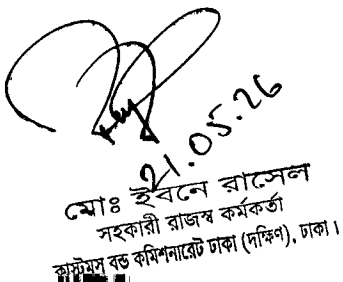 21.05.26
মোঃ ইবনে রাসেল
সহকারী রাজস্ব কর্মকর্তা
কাস্টমস বন্ড কমিশনারেট ঢাকা (দক্ষিণ), ঢাকা।